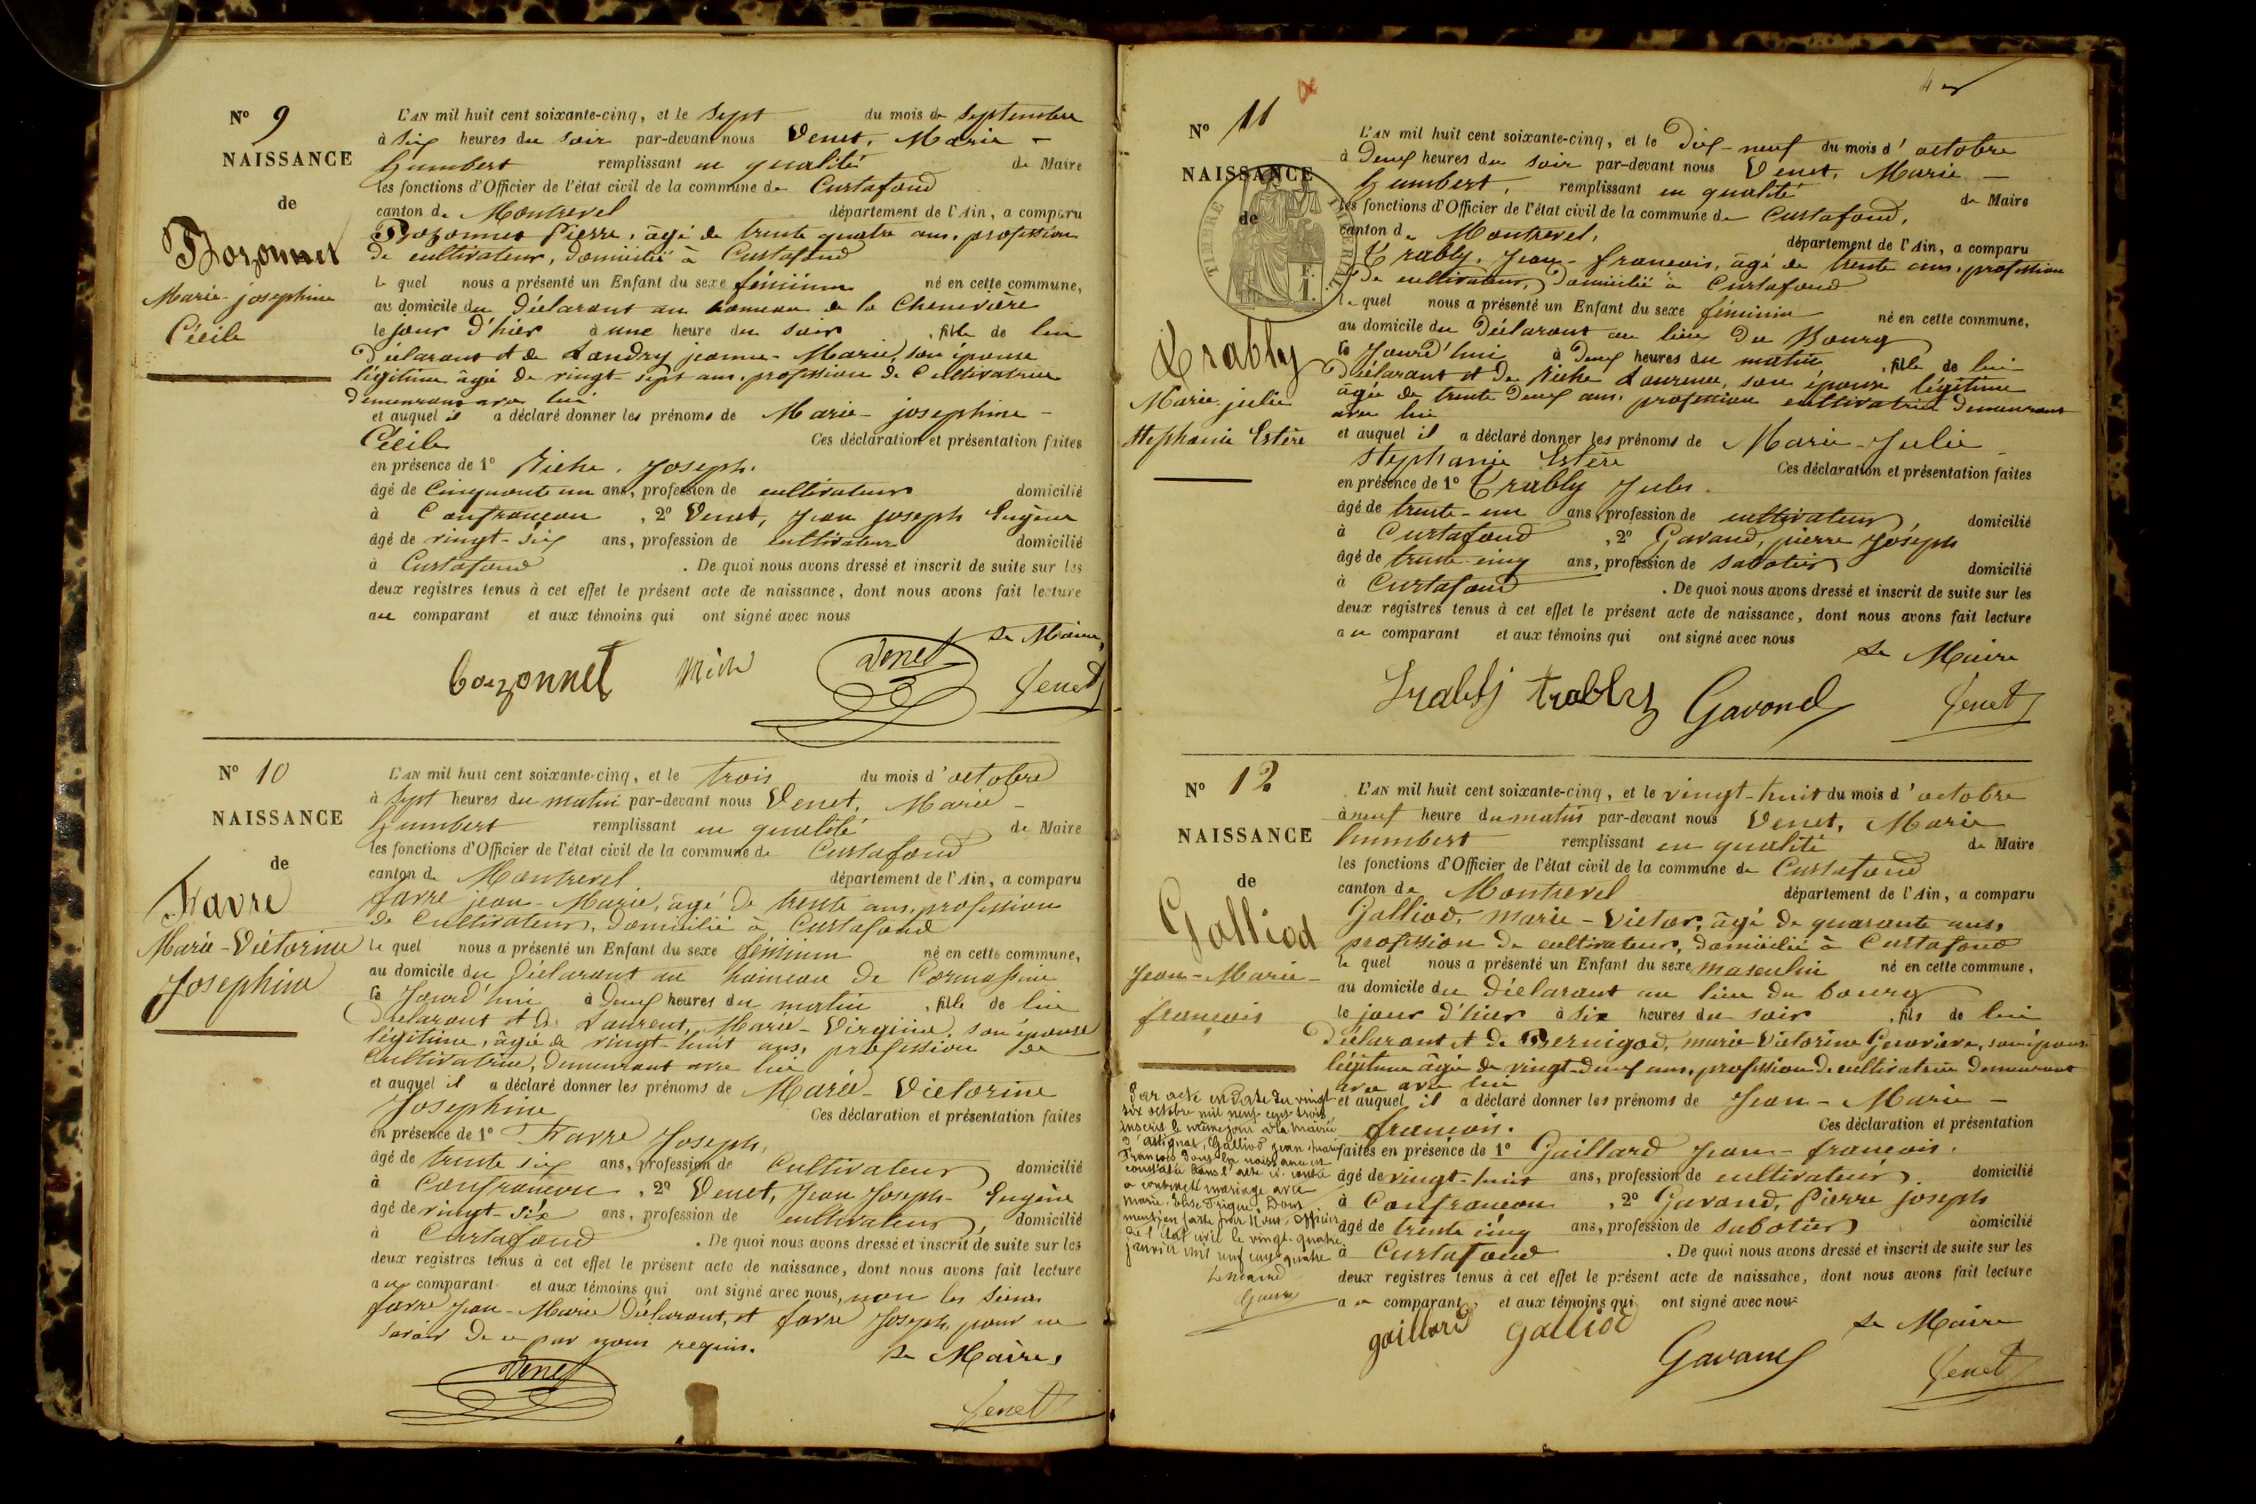 N° 9
NAISSANCE
de
Bozonnet
Marie-josephine
Cécile
L'AN mil huit cent soixante-cinq, et le sept du mois de septembre
à six heures du soir par-devant nous Venet, Marie-
humbert remplissant en qualité de Maire
les fonctions d'Officier de l'état civil de la commune de Curtafond
canton de Montrevel département de l'Ain, a comparu
Bozonnet Pierre, âgé de trente quatre ans, profession
de cultivateur, domicilié à Curtafond
le quel nous a présenté un Enfant du sexe féminin né en cette commune,
au domicile du déclarant au hameau de la Chenevière
le jour d'hier à une heure du soir, fille de lui
déclarant et de Landry jeanne-Marie, son épouse
légitime âgée de vingt-sept ans, profession de Cultivatrice
demeurant avec lui
et auquel il a déclaré donner les prénoms de Marie-josephine-
Cécile Ces déclaration et présentation faites
en présence de 1° Riche, Joseph,
âgé de Cinquante un ans, profession de cultivateur domicilié
à Confrançon, 2° Venet, jean joseph Eugène
âgé de vingt-six ans, profession de cultivateur domicilié
à Curtafond. De quoi nous avons dressé et inscrit de suite sur les
deux registres tenus à cet effet le présent acte de naissance, dont nous avons fait lecture
au comparant et aux témoins qui ont signé avec nous
Le Maire,
bozonnet Venet Venet
N° 10
NAISSANCE
de
Favre
Marie-Victorine
Josephine
L'AN mil huit cent soixante-cinq, et le trois du mois d'octobre
à sept heures du matin par-devant nous Venet, Marie-
humbert remplissant en qualité de Maire
les fonctions d'Officier de l'état civil de la commune de Curtafond
canton de Montrevel département de l'Ain, a comparu
favre jean-Marie, âgé de trente ans, profession
de Cultivateur, domicilié à Curtafond
le quel nous a présenté un Enfant du sexe féminin né en cette commune,
au domicile du déclarant au hameau de Cormassine
ce Jourd'hui à deux heures du matin, fille de lui
déclarant et de Laurent, Marie-Virginie, son épouse
légitime, âgée de vingt-huit ans, profession de
Cultivatrice, demeurant avec lui
et auquel il a déclaré donner les prénoms de Marie-Victorine
Josephine Ces déclaration et présentation faites
en présence de 1° Favre Joseph,
âgé de trente six ans, profession de Cultivateur domicilié
à Confrançon, 2° Venet, Jean Joseph-Eugène
âgé de vingt-six ans, profession de cultivateur, domicilié
à Curtafond. De quoi nous avons dressé et inscrit de suite sur les
deux registres tenus à cet effet le présent acte de naissance, dont nous avons fait lecture
au comparant et aux témoins qui ont signé avec nous, non les sieurs
favre Jean-Marie déclarant, et favre Joseph, pour ne
savoir de ce par nous requis.
Le Maire,
Venet Venet
N° 11
NAISSANCE
de
TIMBRE IMPÉRIAL
Trably
Marie-julie
Stephanie Estère
L'AN mil huit cent soixante-cinq, et le Dix-neuf du mois d'octobre
à Deux heures du soir par-devant nous Venet, Marie-
humbert, remplissant en qualité de Maire
les fonctions d'Officier de l'état civil de la commune de Curtafond,
canton de Montrevel, département de l'Ain, a comparu
Trably, Jean-francois, âgé de trente ans, profession
de cultivateur, domicilié à Curtafond
le quel nous a présenté un Enfant du sexe féminin né en cette commune,
au domicile du déclarant au lieu du Bourg
ce Jourd'hui à deux heures du matin, fille de lui
déclarant et de Riche Laurence, son épouse légitime
âgée de trente deux ans, profession cultivatrice demeurant
avec lui
et auquel il a déclaré donner les prénoms de Marie-Julie
Stephanie Estère Ces déclaration et présentation faites
en présence de 1° Trably Jules
âgé de trente-un ans, profession de cultivateur, domicilié
à Curtafond, 2° Gavand, pierre Joseph
âgé de trente-cinq ans, profession de sabotier domicilié
à Curtafond. De quoi nous avons dressé et inscrit de suite sur les
deux registres tenus à cet effet le présent acte de naissance, dont nous avons fait lecture
au comparant et aux témoins qui ont signé avec nous
Le Maire
Trably trably Gavand Venet
N° 12
NAISSANCE
de
Galliod
Jean-Marie-
françois
L'AN mil huit cent soixante-cinq, et le vingt-huit du mois d'octobre
à neuf heure du matin par-devant nous Venet, Marie
humbert remplissant en qualité de Maire
les fonctions d'Officier de l'état civil de la commune de Curtafond
canton de Montrevel département de l'Ain, a comparu
Galliod, marie-Victor, âgé de quarante ans,
profession de cultivateur, domicilié à Curtafond
le quel nous a présenté un Enfant du sexe masculin né en cette commune,
au domicile du déclarant au lieu du bourg
le jour d'hier à six heures du soir, fils de lui
déclarant et de Bernigod, marie-Victorine Genevieve, son épouse
légitime âgée de vingt-deux ans, profession de cultivatrice demeurant
avec avec lui
et auquel il a déclaré donner les prénoms de Jean-Marie-
francois. Ces déclaration et présentation
faites en présence de 1° Gaillard Jean-francois.
âgé de vingt-huit ans, profession de cultivateur, domicilié
à Confrançon, 2° Gavand, Pierre joseph
âgé de trente cinq ans, profession de sabotier domicilié
à Curtafond. De quoi nous avons dressé et inscrit de suite sur les
deux registres tenus à cet effet le présent acte de naissance, dont nous avons fait lecture
au comparant, et aux témoins qui ont signé avec nous
Le Maire
gaillard galliod Gavand Venet
Par acte en date du vingt
six octobre mil neuf cent trois
inscrit le même jour à la mairie
d'Attignat, Galliod Jean Marie
François dont la naissance est
constatée dans l'acte ci-contre
a contracté mariage avec
Marie Elise Dont
mention faite par Nous, officier
de l'état civil le vingt-quatre
janvier mil neuf cent quatre
Le maire